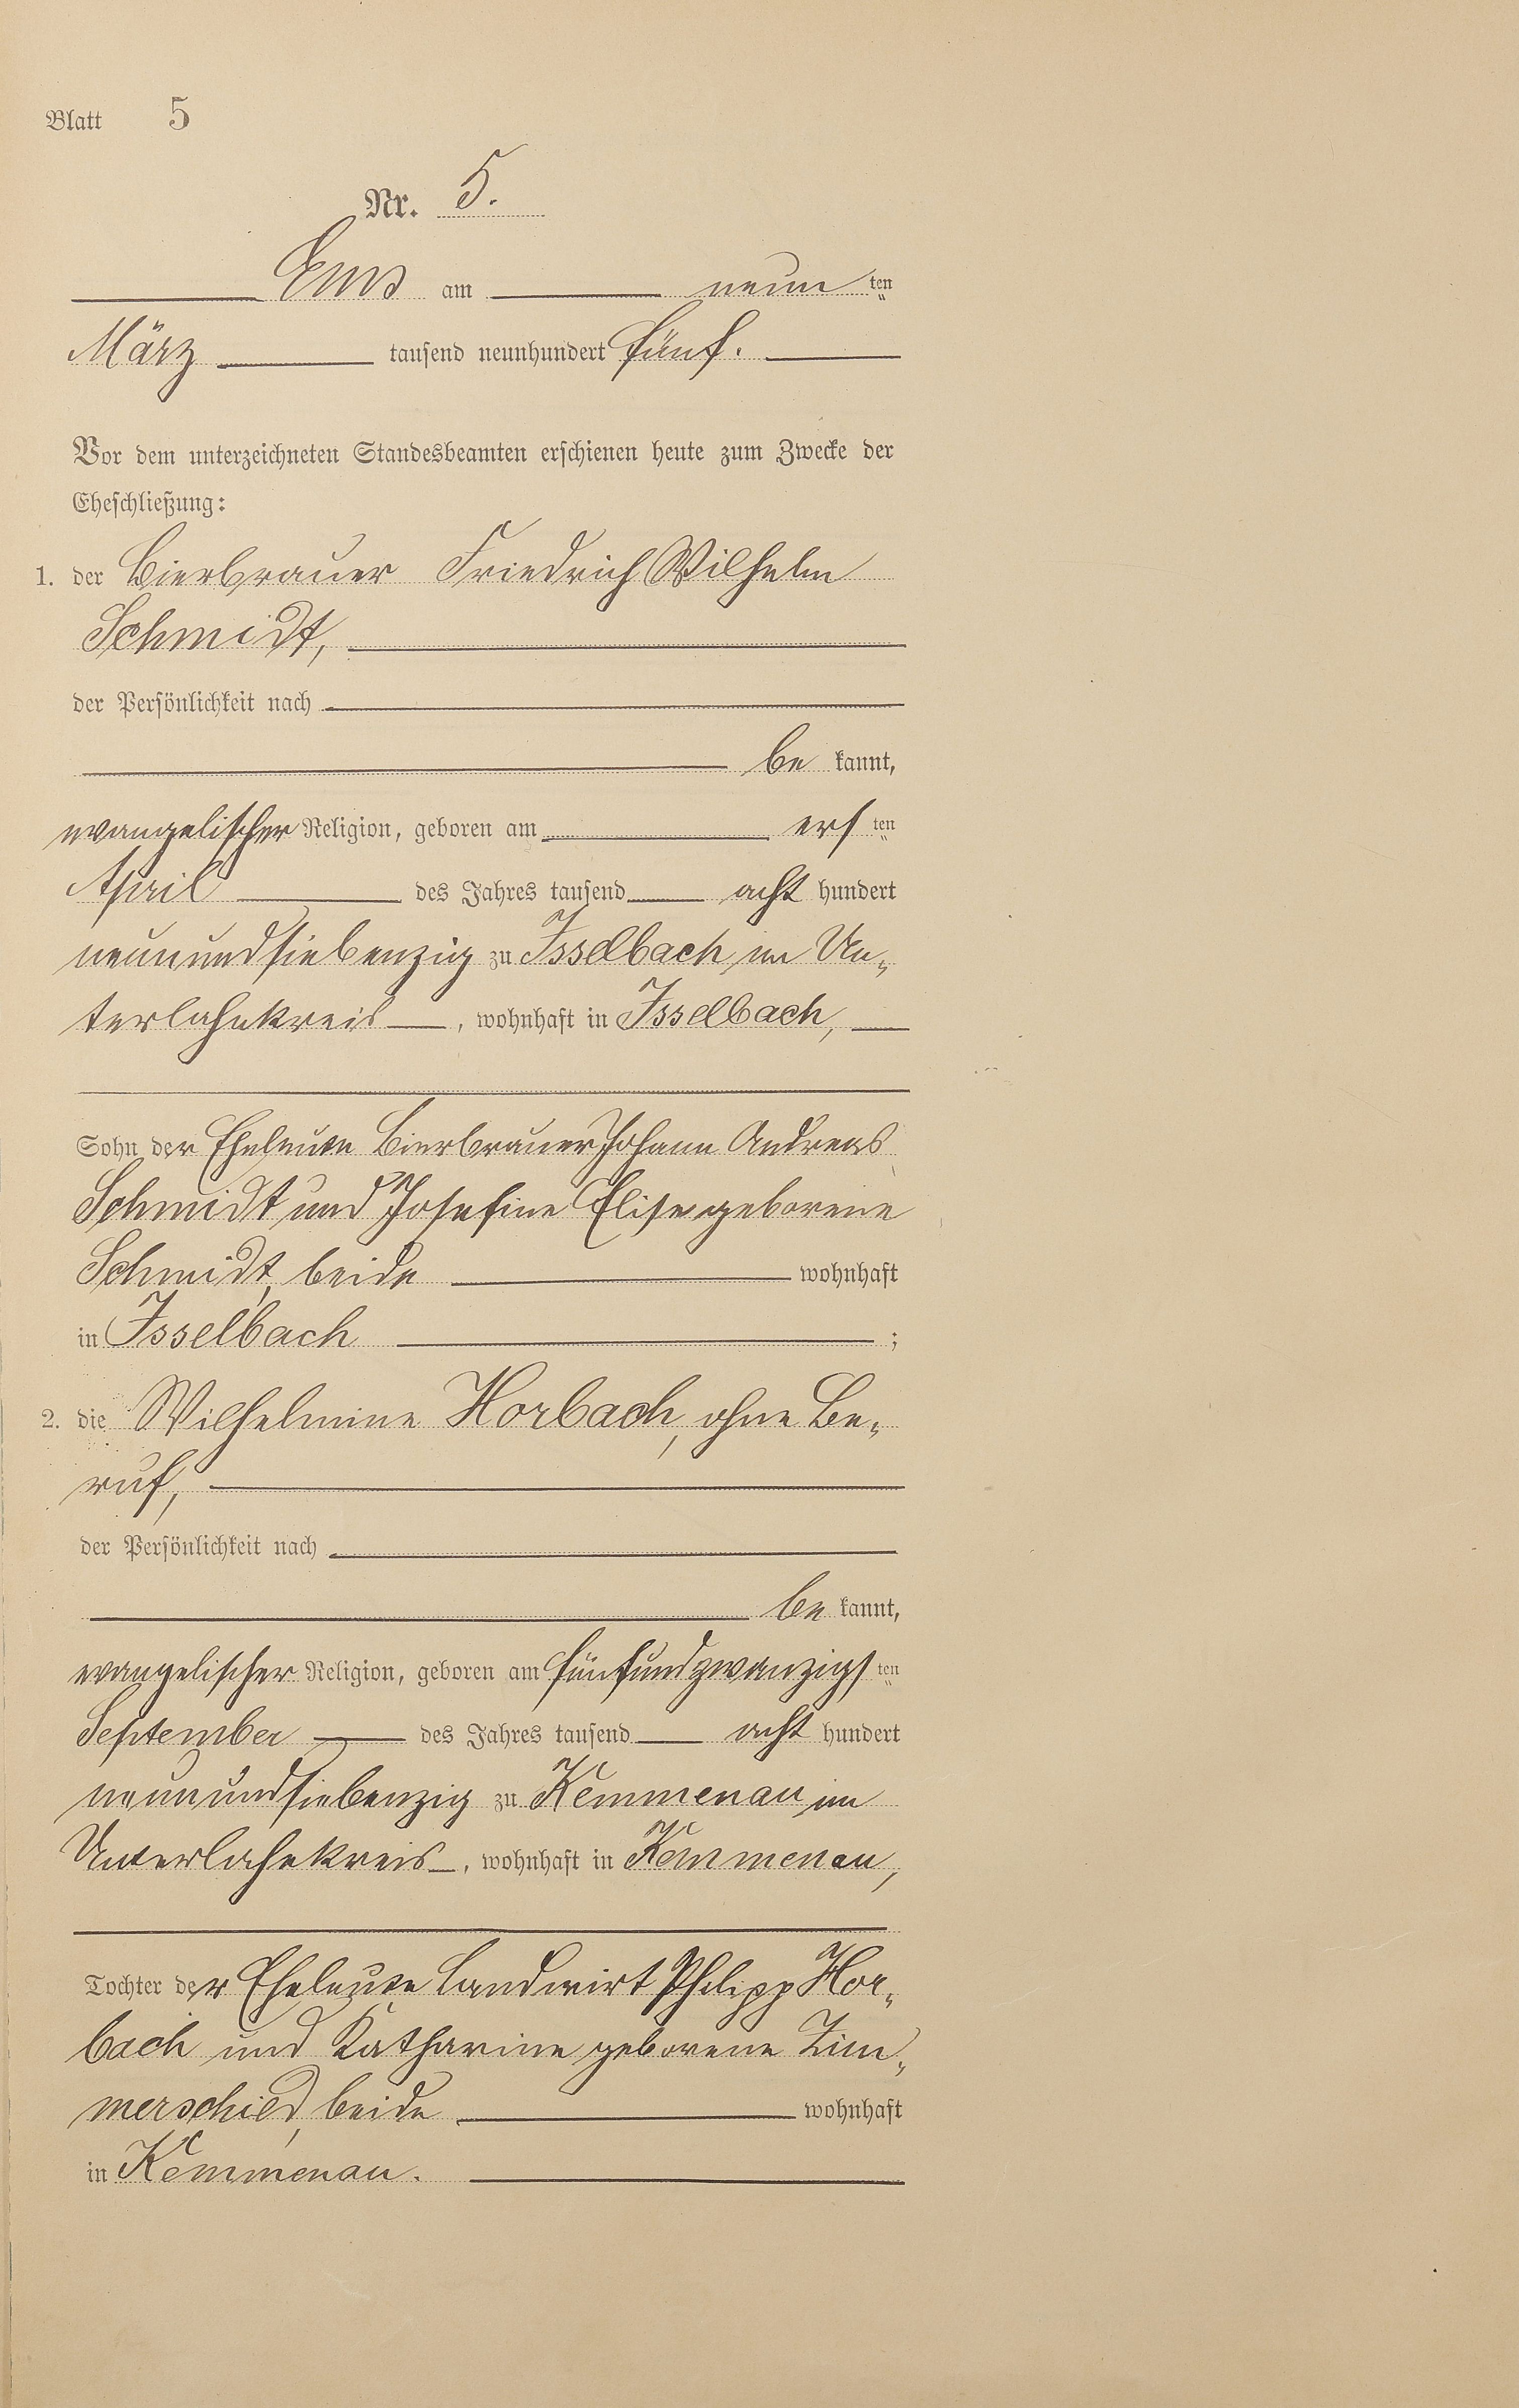 Blatt 5
Nr. 5.
Ems am neun ten
März tausend neunhundert fünf.
Vor dem unterzeichneten Standesbeamten erschienen heute zum Zwecke der
Eheschließung:
1. der Bierbrauer Friedrich Wilhelm
Schmidt,
der Persönlichkeit nach
be kannt,
evangelischer Religion, geboren am ers ten
April des Jahres tausend acht hundert
neunundsiebenzig zu Isselbach im Un„
terlahnkreis, wohnhaft in Isselbach,
Sohn der Eheleute Bierbrauer Johann Andreas
Schmidt und Josefine Elise geborene
Schmidt, beide wohnhaft
in Isselbach ;
2. die Wilhelmine Horbach, ohne Be„
ruf,
der Persönlichkeit nach
be kannt,
evangelischer Religion, geboren am fünfundzwanzigs ten
September des Jahres tausend acht hundert
neunundsiebenzig zu Kemmenau im
Unterlahnkreis, wohnhaft in Kemmenau,
Tochter der Eheleute Landwirt Philipp Hor„
bach und Katharine geborene Zim„
merschied, beide wohnhaft
in Kemmenau.